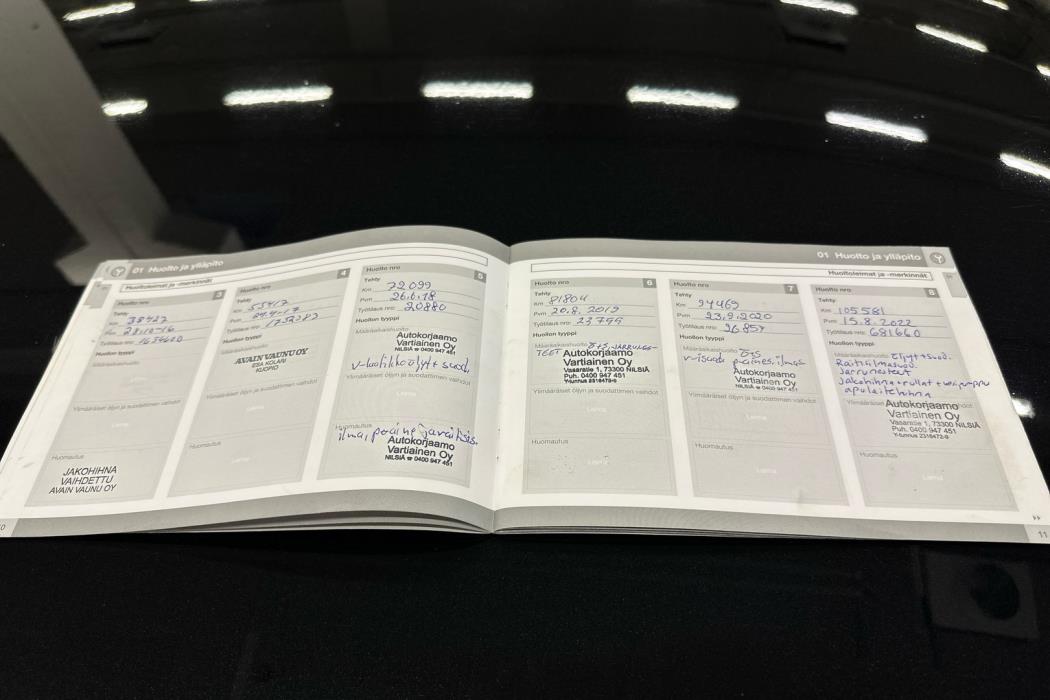 01 Huolto ja ylläpito
Huoltoleimat ja -merkinnät
Huolto nro 3
Tehty
Km 38427
Pvm 28.10-16
Työtilaus nro:
Huollon tyyppi
Määräaikaishuolto
Ylimääräiset öljyn ja suodattimen vaihdot
Leima
Huomautus
JAKOHIHNA
VAIHDETTU
AVAIN VAUNU OY
Huolto nro 4
Tehty
Km 55417
Pvm
Työtilaus nro:
Huollon tyyppi
Määräaikaishuolto
AVAIN VAUNU OY
KOLARI
KUOPIO
Ylimääräiset öljyn ja suodattimen vaihdot
Leima
Huomautus
Leima
Huolto nro 5
Tehty
Km 72099
Pvm 26.6.18
Työtilaus nro: 20880
Huollon tyyppi
Määräaikaishuolto
Autokorjaamo
Vartiainen Oy
NILSIÄ ☎ 0400 947 451
Ylimääräiset öljyn ja suodattimen vaihdot
Leima
Huomautus
Autokorjaamo
Vartiainen Oy
NILSIÄ ☎ 0400 947 451
10
01 Huolto ja ylläpito
Huoltoleimat ja -merkinnät
Huolto nro 6
Tehty
Km 81804
Pvm 20.8.2019
Työtilaus nro: 23799
Huollon tyyppi
Määräaikaishuolto Ö+S, JARRUNES-
TEET
Autokorjaamo
Vartiainen Oy
Vasaratie 1, 73300 NILSIÄ
Puh. 0400 947 451
Y-tunnus 2318472-9
Ylimääräiset öljyn ja suodattimen vaihdot
Leima
Huomautus
Leima
Huolto nro 7
Tehty
Km 94469
Pvm 23.9.2020
Työtilaus nro: 26857
Huollon tyyppi
Määräaikaishuolto Ö+S
Autokorjaamo
Vartiainen Oy
NILSIÄ ☎ 0400 947 451
Ylimääräiset öljyn ja suodattimen vaihdot
Leima
Huomautus
Leima
Huolto nro 8
Tehty
Km 105581
Pvm 15.8.2022
Työtilaus nro: 681660
Huollon tyyppi
Määräaikaishuolto öljyt+suod.
Raitisilmasuod.
Jarrunesteet
Jakohihna+rullat+vesipumppu
apulaitehihna
Autokorjaamo
Vartiainen Oy
Vasaratie 1, 73300 NILSIÄ
Puh. 0400 947 451
Y-tunnus 2318472-9
Huomautus
Leima
11